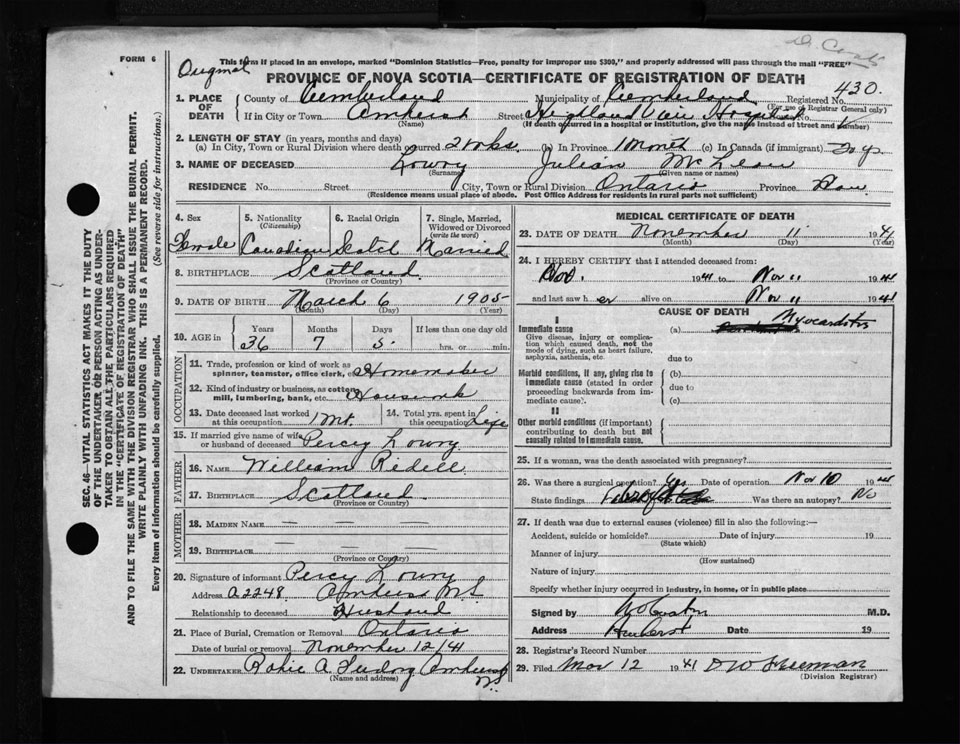 FORM 6
This form if placed in an envelope, marked "Dominion Statistics—Free, penalty for improper use $300," and properly addressed will pass through the mail "FREE"
Original
PROVINCE OF NOVA SCOTIA—CERTIFICATE OF REGISTRATION OF DEATH
430.
1. PLACE OF DEATH County of Cumberland Municipality of Cumberland Registered No.
(For use of Registrar General only)
If in City or Town Amherst Street Highland View Hospital No.
(Name) (If death occurred in a hospital or institution, give the name instead of street and number)
2. LENGTH OF STAY (in years, months and days)
(a) In City, Town or Rural Division where death occurred 2 wks. (b) In Province 1 Month (c) In Canada (if immigrant)
3. NAME OF DECEASED Lowry Julian McLean
(Surname) (Given name or names)
RESIDENCE No. Street City, Town or Rural Division Ontario Province
(Residence means usual place of abode. Post Office Address for residents in rural parts not sufficient)
4. Sex 5. Nationality 6. Racial Origin 7. Single, Married,
(Citizenship) Widowed or Divorced
(write the word)
Female Canadian Scotch Married
8. BIRTHPLACE Scotland
(Province or Country)
9. DATE OF BIRTH March 6 1905
(Month) (Day) (Year)
10. AGE in Years Months Days If less than one day old
36 7 5 hrs. or min.
OCCUPATION
11. Trade, profession or kind of work as spinner, teamster, office clerk, etc. Homemaker
12. Kind of industry or business, as cotton mill, lumbering, bank, etc. Housework
13. Date deceased last worked at this occupation 1 Mt. 14. Total yrs. spent in this occupation Life
15. If married give name of wife or husband of deceased Percy Lowry
FATHER
16. NAME William Ridell
17. BIRTHPLACE Scotland
(Province or Country)
MOTHER
18. MAIDEN NAME — — —
19. BIRTHPLACE — — —
(Province or Country)
20. Signature of informant Percy Lowry
Address A2248 Amherst N.S.
Relationship to deceased Husband
21. Place of Burial, Cremation or Removal Ontario
Date of burial or removal November 12/41
22. UNDERTAKER Amherst N.S.
(Name and address)
MEDICAL CERTIFICATE OF DEATH
23. DATE OF DEATH November 11 1941
(Month) (Day) (Year)
24. I HEREBY CERTIFY that I attended deceased from:
Nov. 1941 to Nov 11 1941
and last saw her alive on Nov 11 1941
CAUSE OF DEATH
I
Immediate cause (a) Myocarditis
Give disease, injury or complication which caused death, not the mode of dying, such as heart failure, asphyxia, asthenia, etc.
due to
Morbid conditions, if any, giving rise to immediate cause (stated in order proceeding backwards from immediate cause). (b)
due to
(c)
II
Other morbid conditions (if important) contributing to death but not causally related to immediate cause.
25. If a woman, was the death associated with pregnancy?
26. Was there a surgical operation? Yes Date of operation Nov 10 1941
State findings Was there an autopsy? No
27. If death was due to external causes (violence) fill in also the following:—
Accident, suicide or homicide? Date of injury 19
(State which)
Manner of injury
(How sustained)
Nature of injury
Specify whether injury occurred in industry, in home, or in public place
Signed by M.D.
Address Amherst Date 19
28. Registrar's Record Number
29. Filed Nov 12 1941 D W Freeman
(Division Registrar)
SEC. 46—VITAL STATISTICS ACT MAKES IT THE DUTY
OF THE UNDERTAKER OR PERSON ACTING AS UNDER-
TAKER TO OBTAIN ALL THE PARTICULARS REQUIRED
IN THE "CERTIFICATE OF REGISTRATION OF DEATH"
AND TO FILE THE SAME WITH THE DIVISION REGISTRAR WHO SHALL ISSUE THE BURIAL PERMIT.
WRITE PLAINLY WITH UNFADING INK. THIS IS A PERMANENT RECORD.
Every item of information should be carefully supplied. (See reverse side for instructions.)